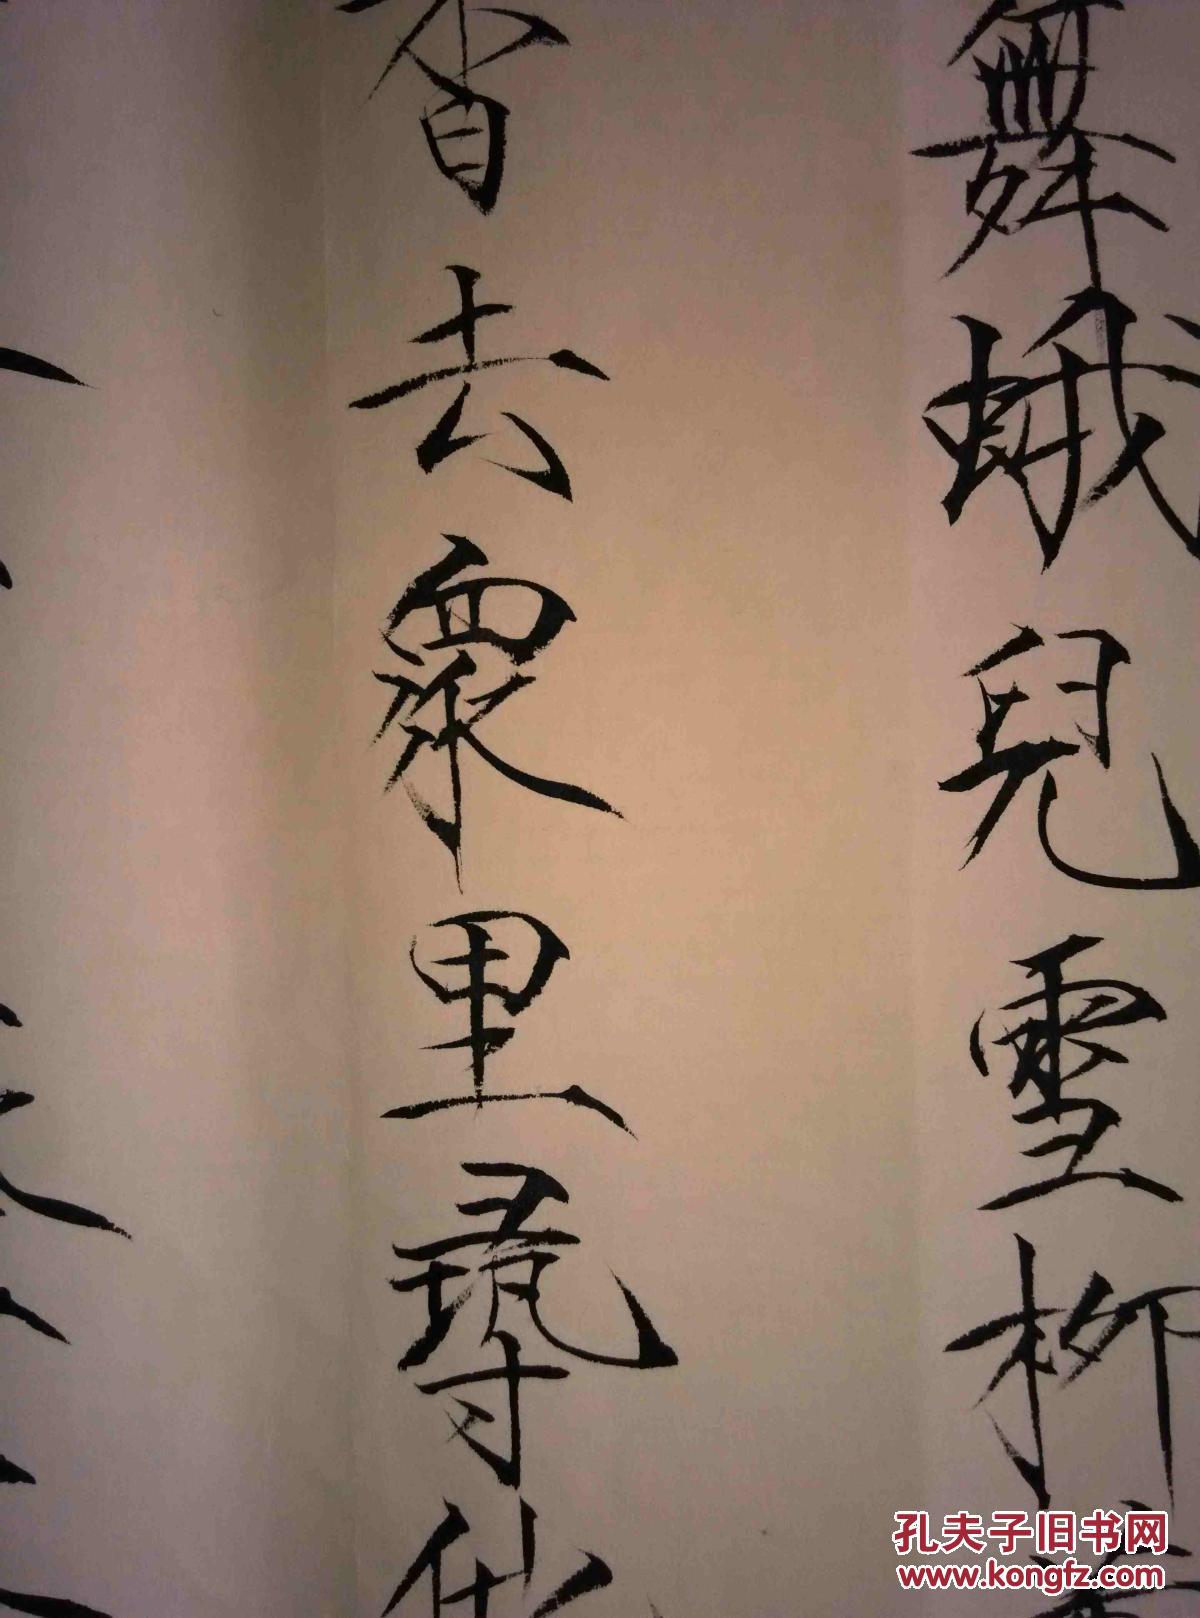 舞蛾兒雪柳黄
香去衆里尋他
孔夫子旧书网
www.kongfz.com